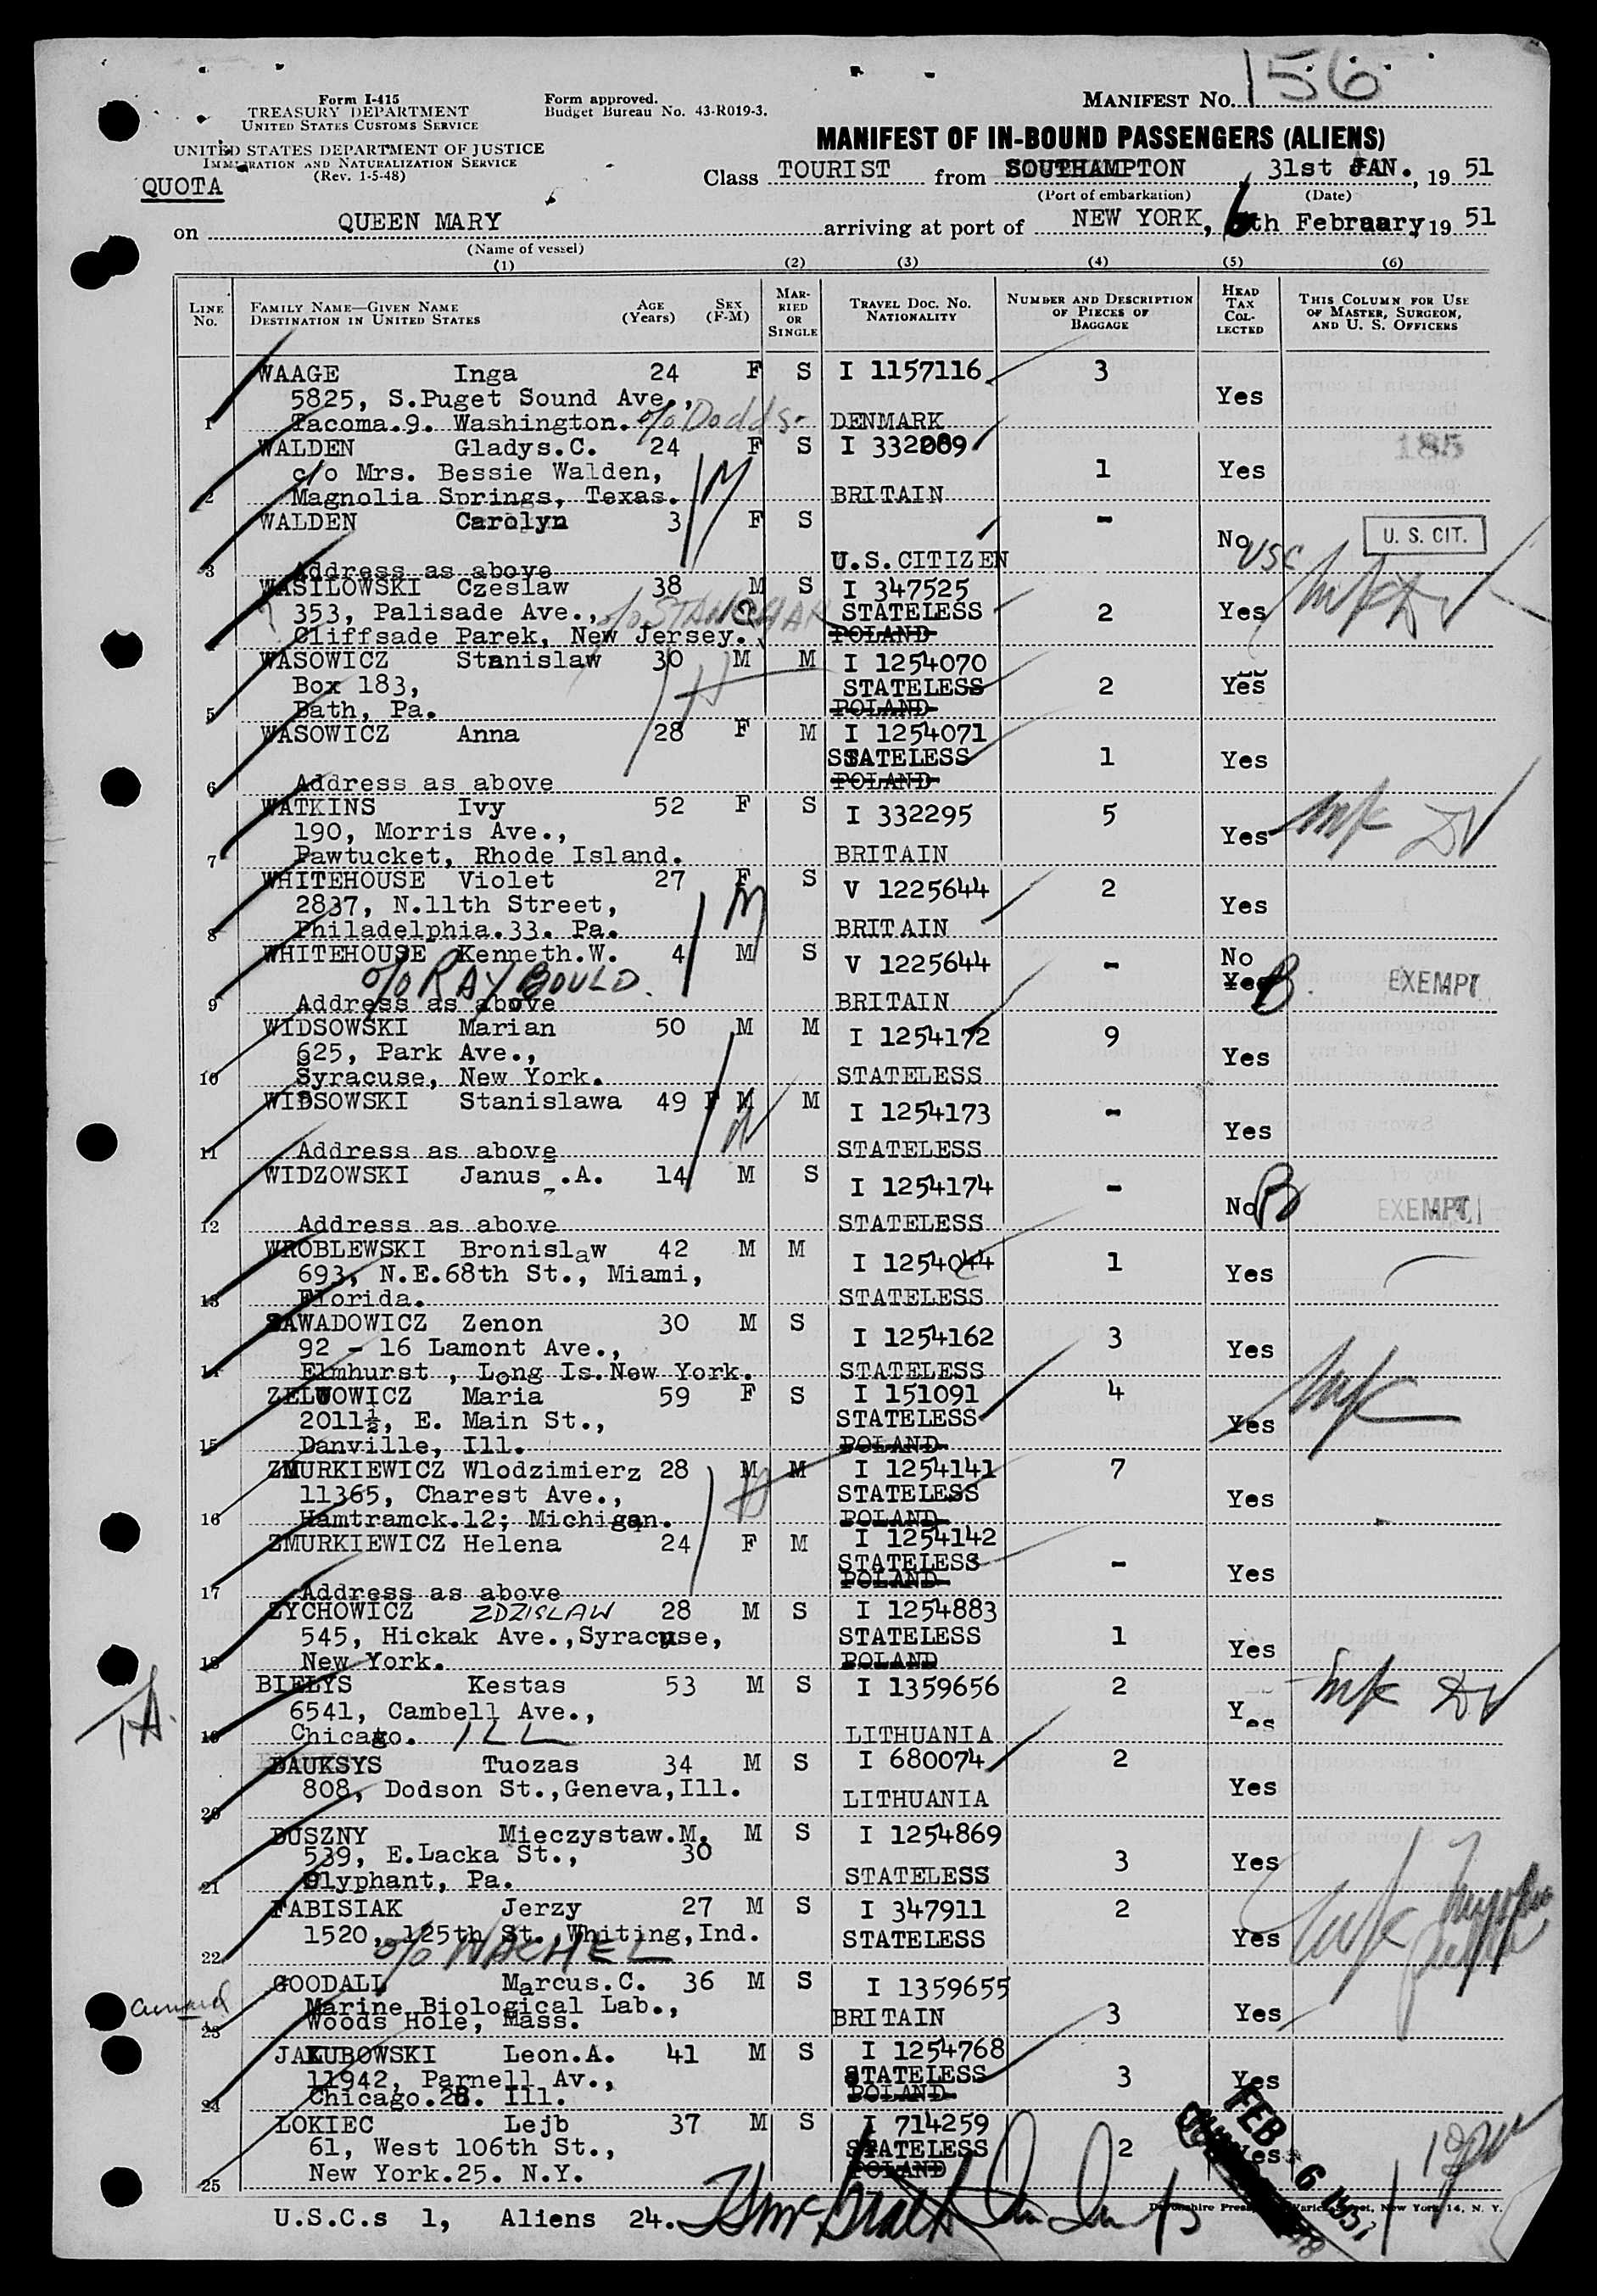 156
Form I-415
TREASURY DEPARTMENT
UNITED STATES CUSTOMS SERVICE
UNITED STATES DEPARTMENT OF JUSTICE
IMMIGRATION AND NATURALIZATION SERVICE
(Rev. 1-5-48)
Form approved.
Budget Bureau No. 43-R019-3.
MANIFEST NO.
MANIFEST OF IN-BOUND PASSENGERS (ALIENS)
QUOTA
Class TOURIST from SOUTHAMPTON, 31st JAN., 19 51
(Port of embarkation) (Date)
on QUEEN MARY arriving at port of NEW YORK, 6th February 19 51
(Name of vessel)
(1) (2) (3) (4) (5) (6)
LINE NO. FAMILY NAME—GIVEN NAME DESTINATION IN UNITED STATES AGE (Years) SEX (F-M) MARRIED OR SINGLE TRAVEL DOC. NO. NATIONALITY NUMBER AND DESCRIPTION OF PIECES OF BAGGAGE HEAD TAX COLLECTED THIS COLUMN FOR USE OF MASTER, SURGEON, AND U. S. OFFICERS
WAAGE Inga 24 F S I 1157116 3
5825, S.Puget Sound Ave., Yes
1 Tacoma.9. Washington. c/o Dodds DENMARK
WALDEN Gladys.C. 24 F S I 332089 185
c/o Mrs. Bessie Walden, 1 Yes
2 Magnolia Springs, Texas. M BRITAIN
WALDEN Carolyn 3 F S -
No USC U. S. CIT.
3 Address as above U.S.CITIZEN
WASILOWSKI Czeslaw 38 M S I 347525
353, Palisade Ave., STATELESS 2 Yes
Cliffsade Parek, New Jersey. POLAND
WASOWICZ Stanislaw 30 M M I 1254070
Box 183, STATELESS 2 Yes
5 Bath, Pa. POLAND
WASOWICZ Anna 28 F M I 1254071
STATELESS 1 Yes
6 Address as above POLAND
WATKINS Ivy 52 F S I 332295 5
190, Morris Ave., Yes
7 Pawtucket, Rhode Island. BRITAIN
WHITEHOUSE Violet 27 F S V 1225644 2
2837, N.11th Street, M Yes
8 Philadelphia.33. Pa. BRITAIN
WHITEHOUSE Kenneth.W. 4 M S V 1225644 - No
c/o RAYBOULD. Yes B. EXEMPT
9 Address as above BRITAIN
WIDSOWSKI Marian 50 M M I 1254172 9
625, Park Ave., Yes
10 Syracuse, New York. STATELESS
WIDSOWSKI Stanislawa 49 F M M I 1254173 -
Yes
11 Address as above STATELESS
WIDZOWSKI Janus .A. 14 M S I 1254174 -
No B EXEMPT
12 Address as above STATELESS
WROBLEWSKI Bronislaw 42 M M I 1254044 1
693, N.E.68th St., Miami, Yes
13 Florida. STATELESS
ZAWADOWICZ Zenon 30 M S I 1254162 3
92 - 16 Lamont Ave., Yes
14 Elmhurst , Long Is.New York. STATELESS
ZELWOWICZ Maria 59 F S I 151091 4
2011½, E. Main St., STATELESS Yes
15 Danville, Ill. POLAND
ZMURKIEWICZ Wlodzimierz 28 M M I 1254141 7
11365, Charest Ave., STATELESS Yes
16 Hamtramck.12; Michigan. POLAND
ZMURKIEWICZ Helena 24 F M I 1254142
STATELESS - Yes
POLAND
17 Address as above
ZYCHOWICZ ZDZISLAW 28 M S I 1254883
545, Hickak Ave.,Syracuse, STATELESS 1 Yes
18 New York. POLAND
BIELYS Kestas 53 M S I 1359656 2
6541, Cambell Ave., Yes
19 Chicago. ILL LITHUANIA
DAUKSYS Tuozas 34 M S I 680074 2
808, Dodson St.,Geneva,Ill. Yes
20 LITHUANIA
DUSZNY Mieczystaw.M. M S I 1254869
539, E.Lacka St., 30 3 Yes
21 Olyphant, Pa. STATELESS
FABISIAK Jerzy 27 M S I 347911 2
1520, 125th St. Whiting,Ind. STATELESS Yes
22 c/o WACHEL
GOODALL Marcus.C. 36 M S I 1359655
Marine Biological Lab., BRITAIN 3 Yes
23 Woods Hole, Mass.
JAKUBOWSKI Leon.A. 41 M S I 1254768
11942, Parnell Av., STATELESS 3 Yes
24 Chicago.28. Ill. POLAND
LOKIEC Lejb 37 M S I 714259
61, West 106th St., STATELESS 2 Yes
25 New York.25. N.Y. POLAND
FEB 6 1951
U.S.C.s 1, Aliens 24.